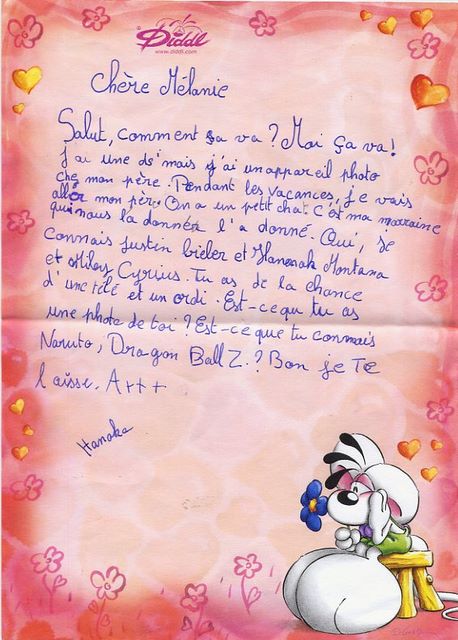 Diddl
www.diddl.com
Chère Mélanie
Salut, comment ça va ? Moi ça va !
J'ai une ds mais j'ai un appareil photo
che mon père. Pendant les vacances, je vais
aller mon pèr. On a un petit chat. C'est ma marraine
qui nous la donner l'a donné. Oui, je
connais justin bieler et Hanenah Montana
et Miley Cyrius. Tu as de la chance
d'une télé et un ordi. Est-ce qu tu as
une photo de toi ? Est-ce que tu connais
Naruto, Dragon Ball Z. ? Bon je Te
laisse. A+++
Hanaka